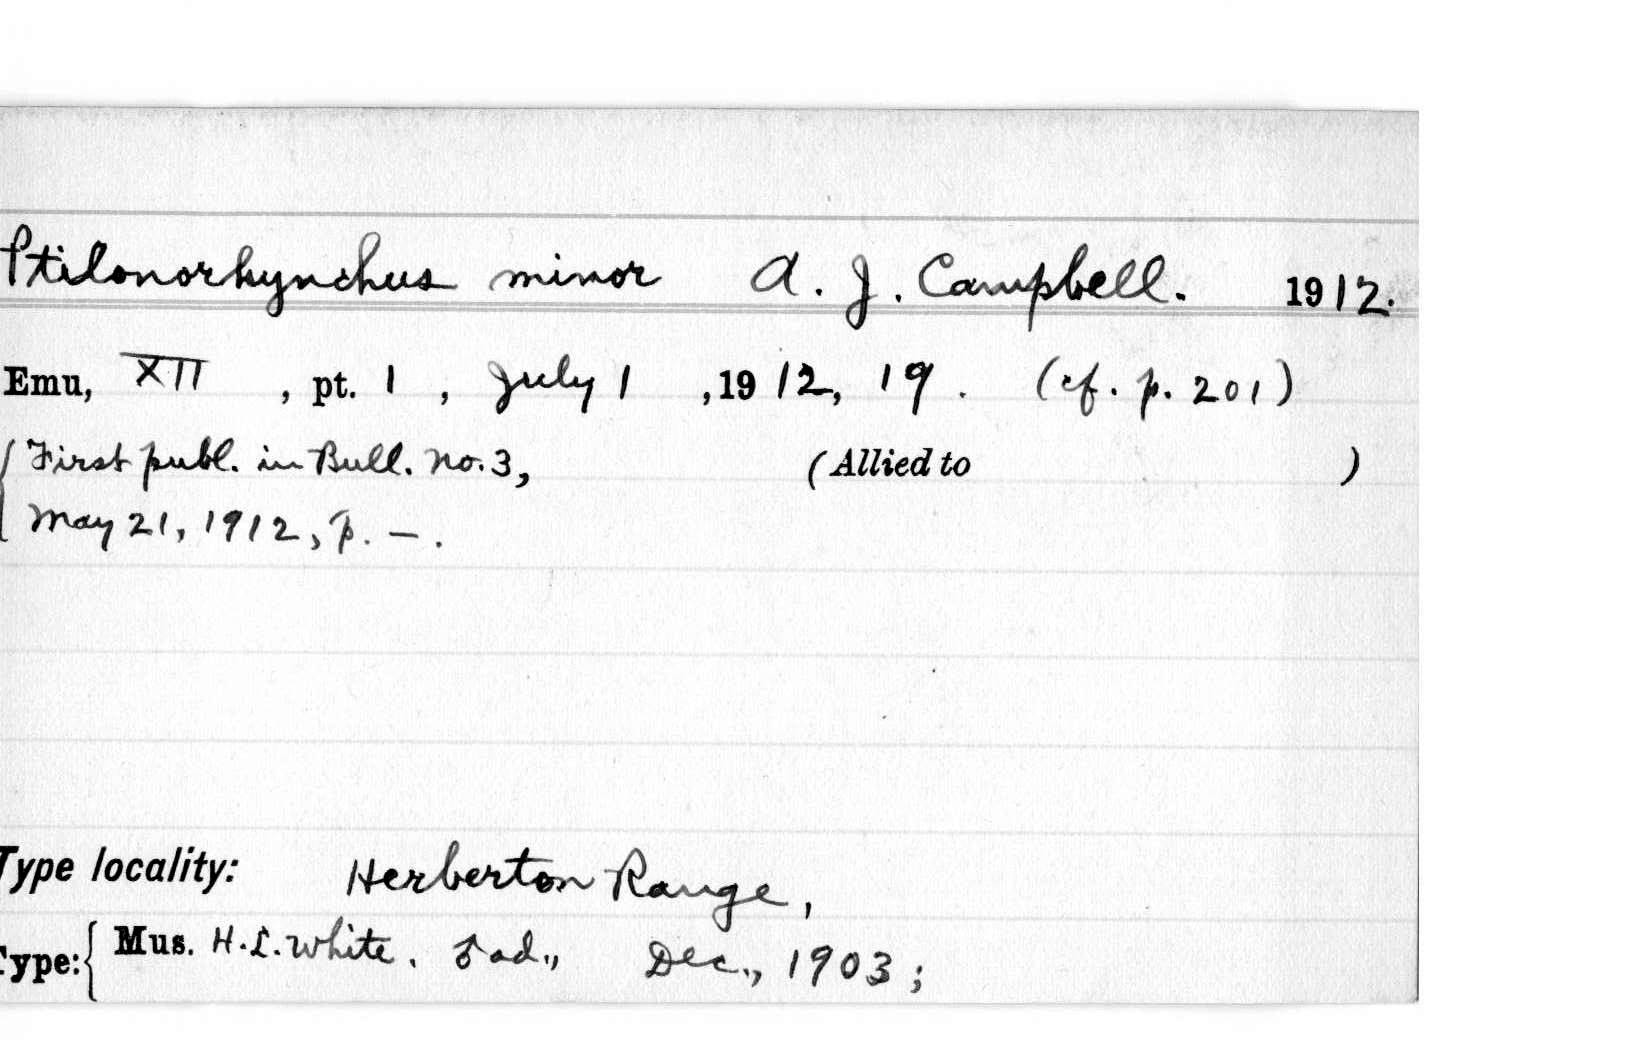 Ptilonorhynchus minor A. J. Campbell. 1912.
Emu, XII, pt. 1, July 1, 1912, 19. (cf. p. 201)
{ First publ. in Bull. No. 3, (Allied to )
May 21, 1912, p. –.
Type locality: Herberton Range,
Type: { Mus. H. L. White. ♂ ad., Dec., 1903;